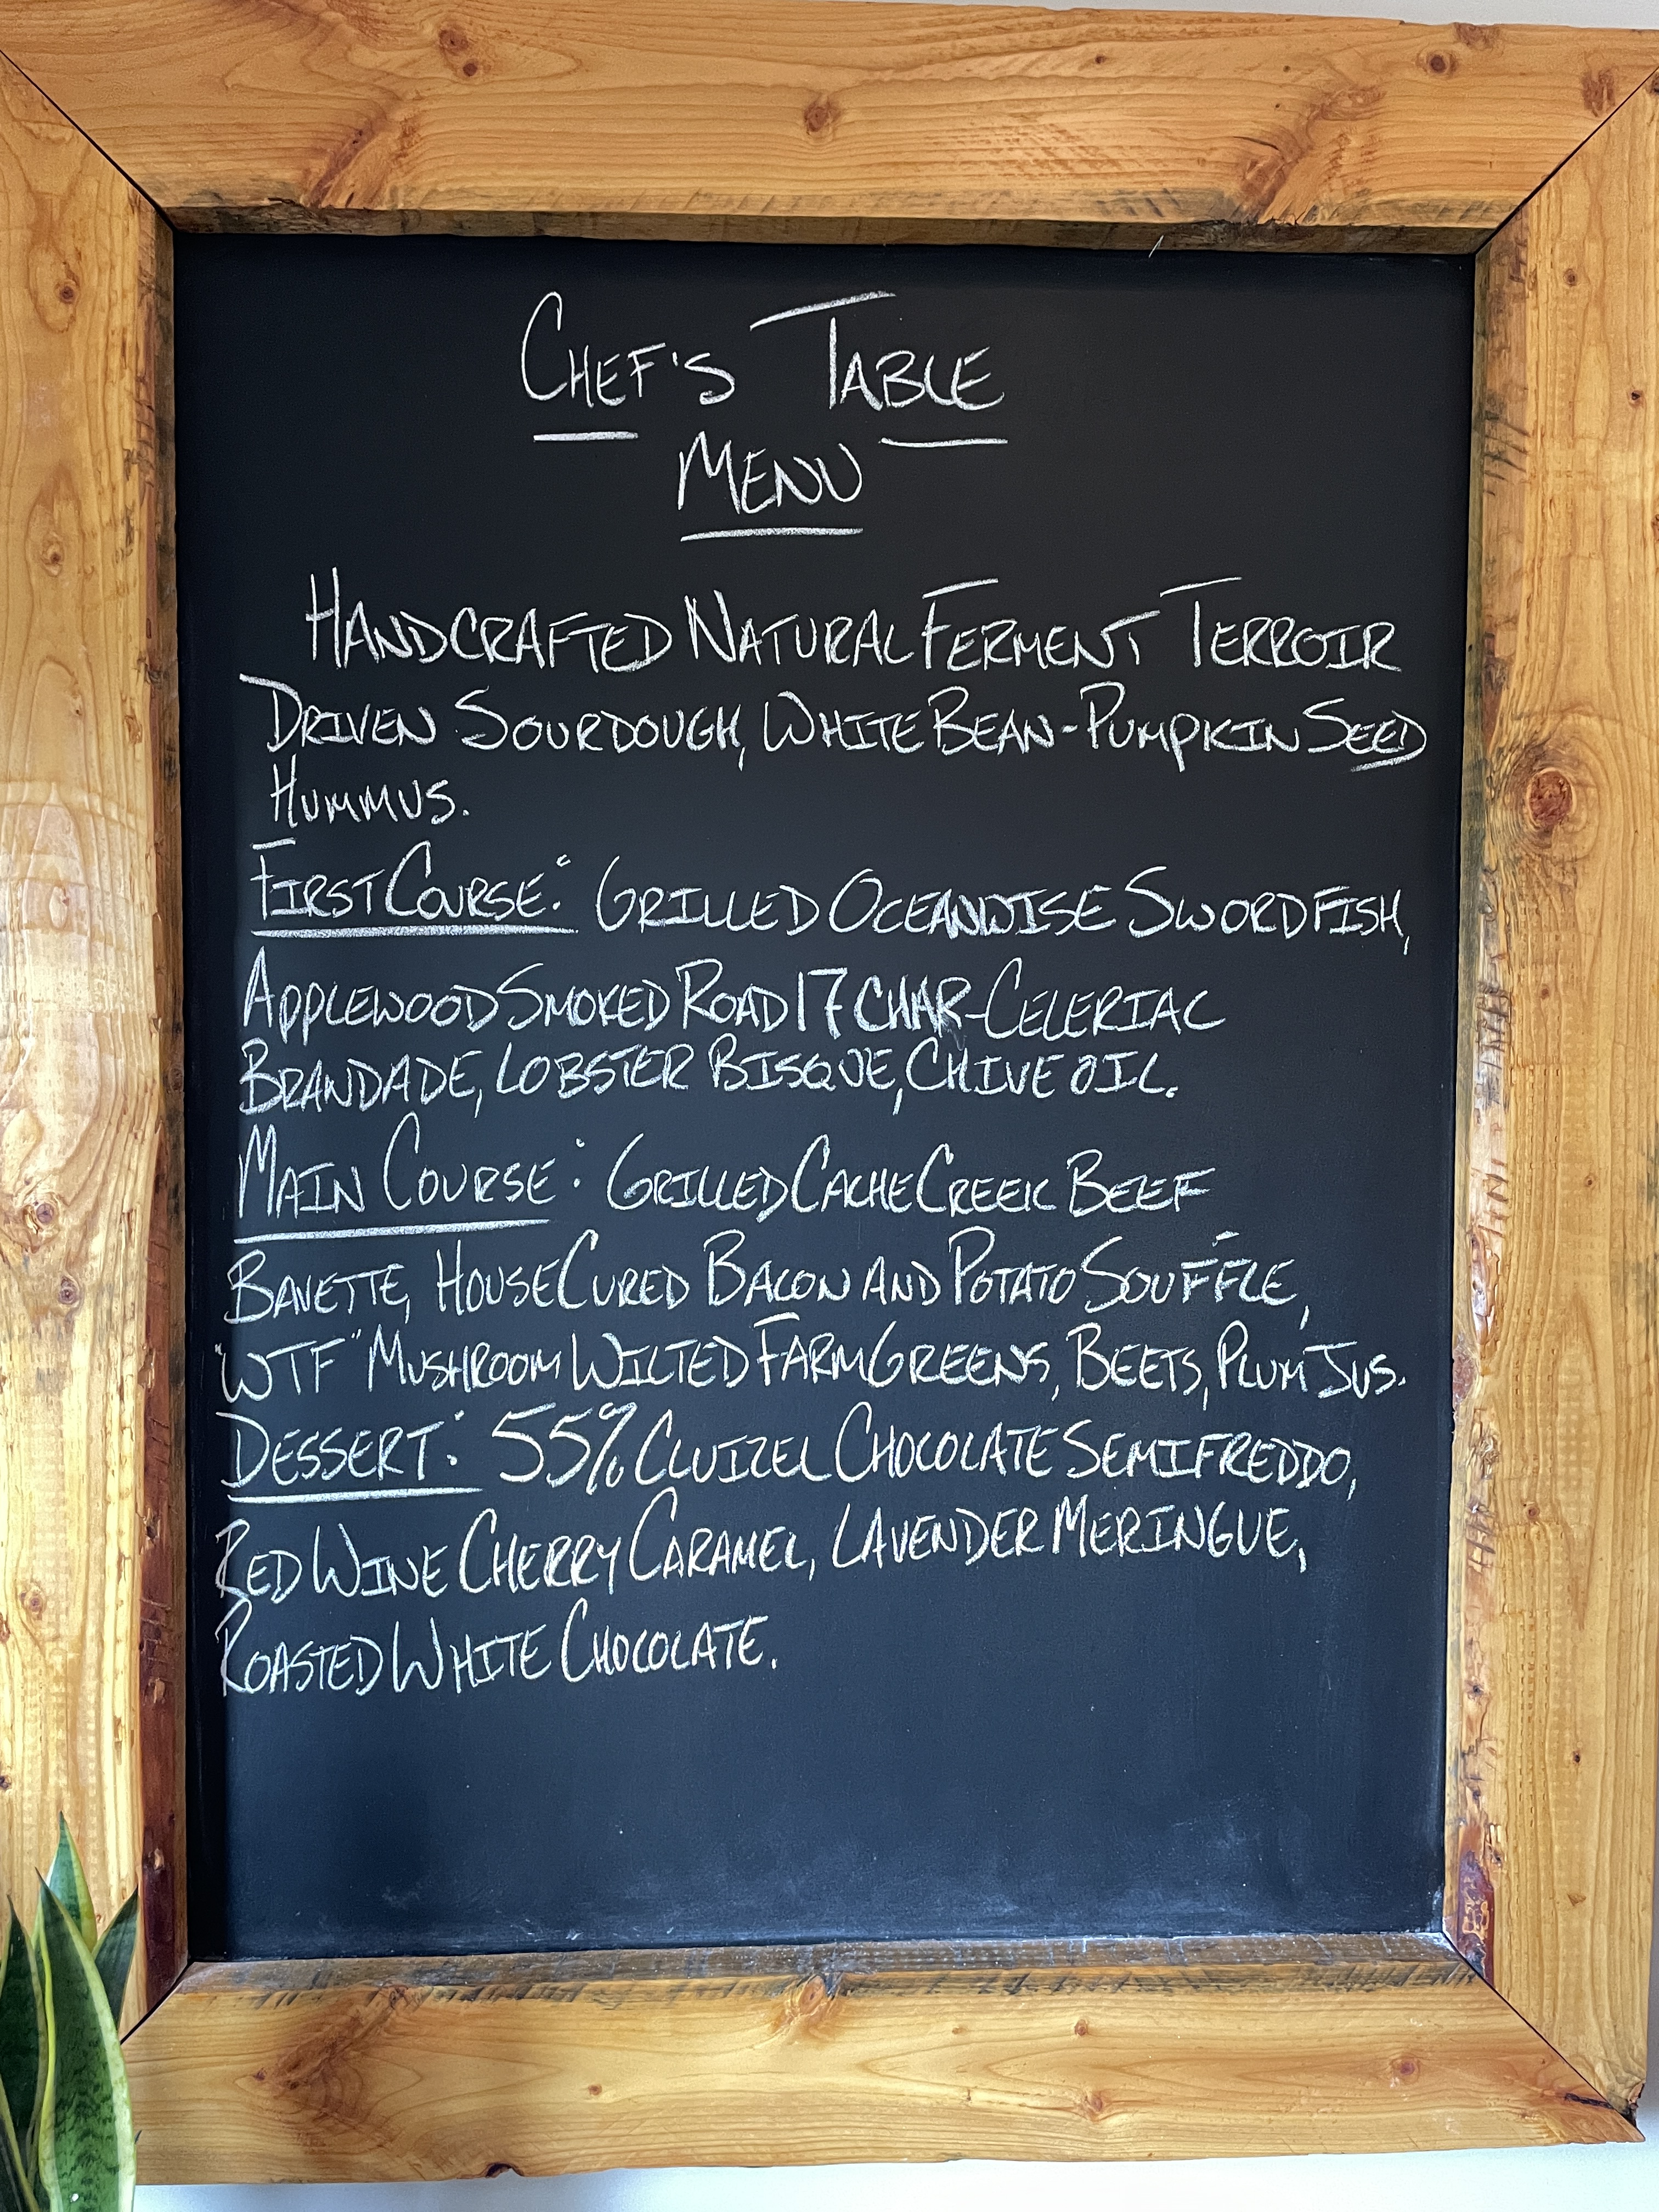 CHEF'S TABLE
MENU
HANDCRAFTED NATURAL FERMENT TERROIR
DRIVEN SOURDOUGH, WHITE BEAN-PUMPKIN SEED
HUMMUS.
FIRST COURSE: GRILLED OCEANWISE SWORDFISH,
APPLEWOOD SMOKED ROAD 17 CHAR-CELERIAC
BRANDADE, LOBSTER BISQUE, CHIVE OIL.
MAIN COURSE: GRILLED CACHE CREEK BEEF
BAVETTE, HOUSE CURED BACON AND POTATO SOUFFLE,
"WTF" MUSHROOM WILTED FARM GREENS, BEETS, PLUM JUS.
DESSERT: 55% CLUIZEL CHOCOLATE SEMIFREDDO,
RED WINE CHERRY CARAMEL, LAVENDER MERINGUE,
ROASTED WHITE CHOCOLATE.